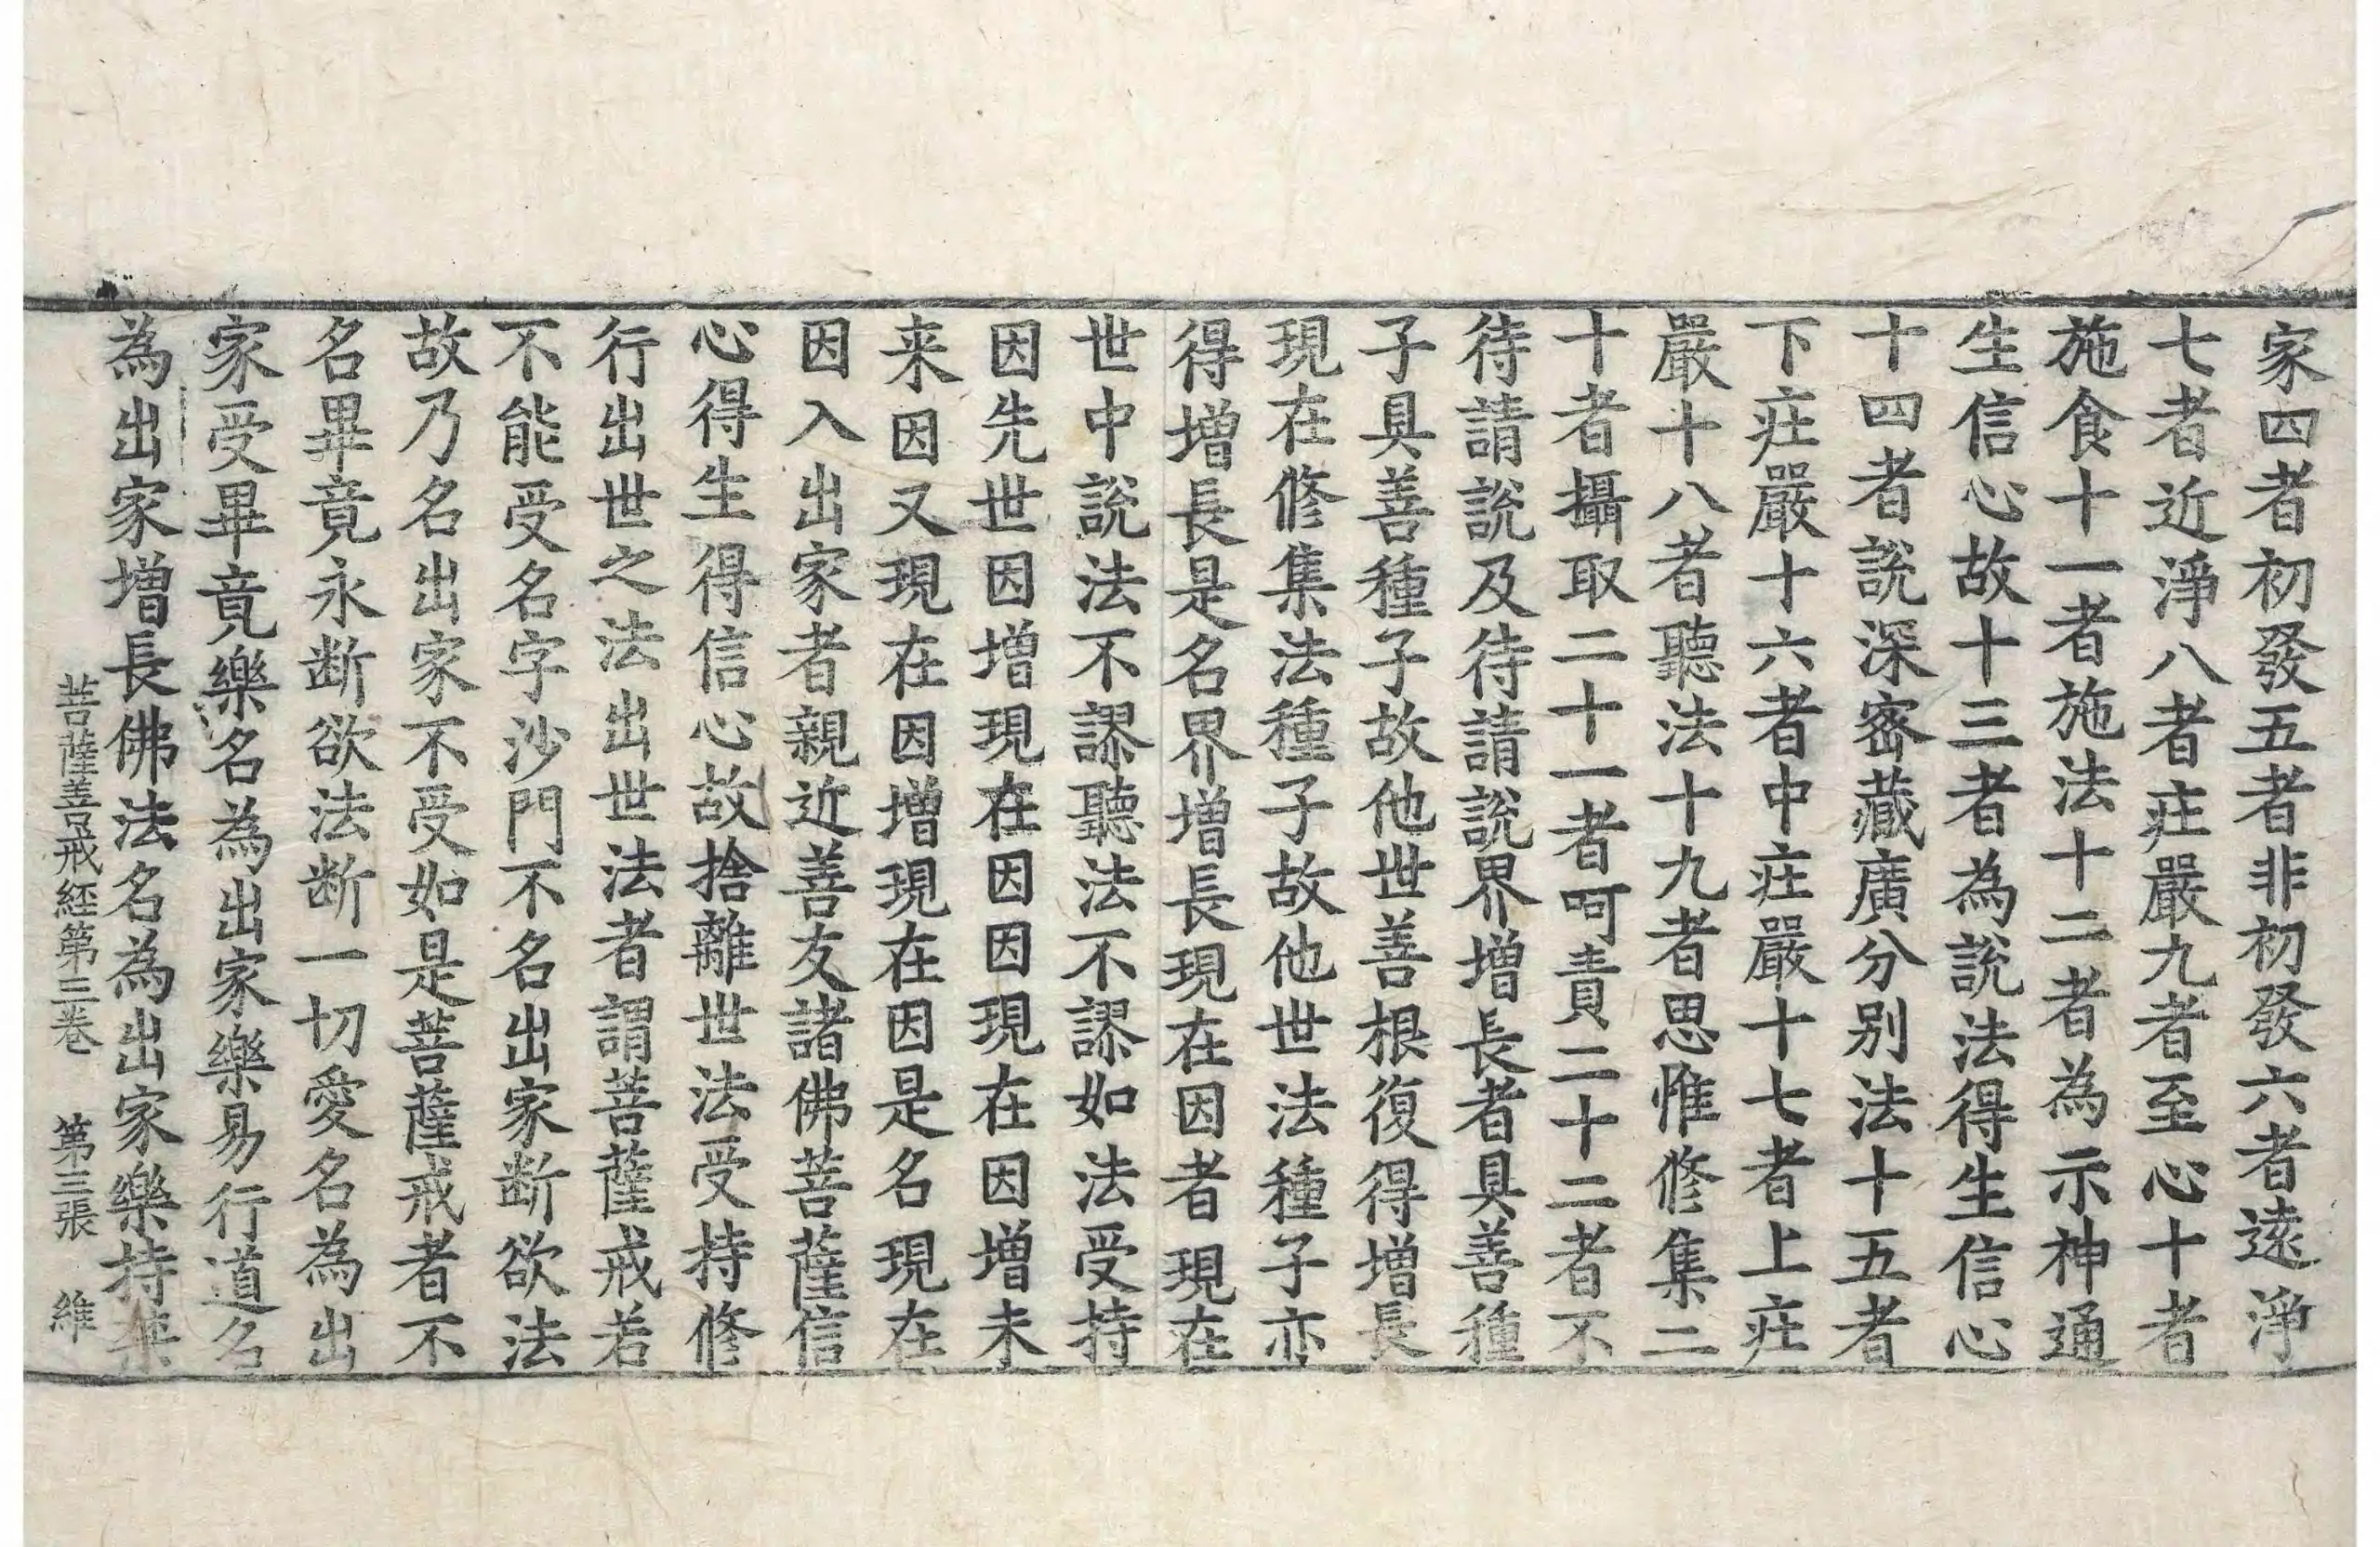 家四者初發五者非初發六者遠淨
七者近淨八者庄嚴九者至心十者
施食十一者施法十二者為示神通
生信心故十三者為說法得生信心
十四者說深密藏廣分別法十五者
下庄嚴十六者中庄嚴十七者上庄
嚴十八者聽法十九者思惟修集二
十者攝取二十一者呵責二十二者不
待請說及待請說界增長者具善種
子具善種子故他世善根復得增長
現在修集法種子故他世法種子亦
得增長是名界增長現在因者現在
世中說法不謬聽法不謬如法受持
因先世因增現在因因現在因增未
来因又現在因增現在因是名現在
因入出家者親近善友諸佛菩薩信
心得生得信心故捨離世法受持修
行出世之法出世法者謂菩薩戒若
不能受名字沙門不名出家断欲法
故乃名出家不受如是菩薩戒者不
名畢竟永断欲法断一切愛名為出
家受畢竟樂名為出家樂易行道名
為出家增長佛法名為出家樂持禁
菩薩善戒経第三卷 第三張 維